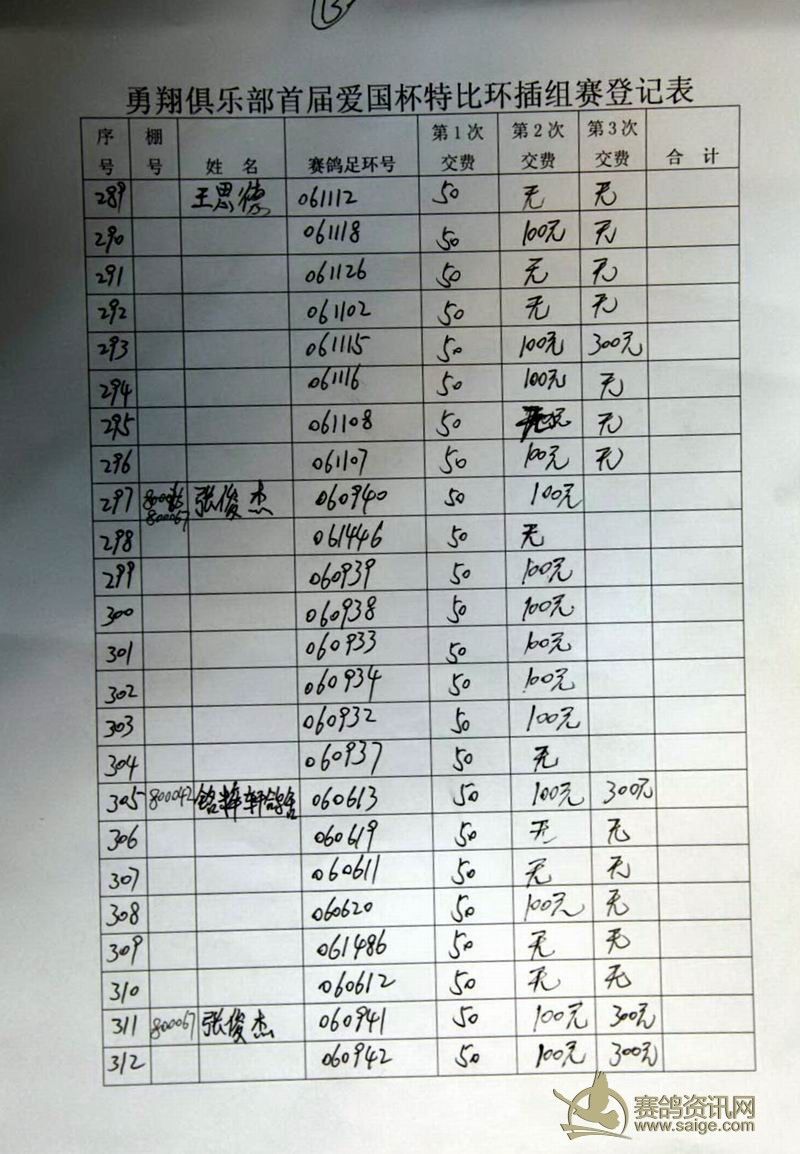 13
勇翔俱乐部首届爱国杯特比环插组赛登记表
序号 棚号 姓名 赛鸽足环号 第1次交费 第2次交费 第3次交费 合计
289 王思德 061112 50 无 无
290 061118 50 100元 无
291 061126 50 无 无
292 061102 50 无 无
293 061115 50 100元 300元
294 061116 50 100元 无
295 061108 50 无
296 061107 50 100元 无
297 800067 张俊杰 060940 50 100元
298 061446 50 无
299 060939 50 100元
300 060938 50 100元
301 060933 50 100元
302 060934 50 100元
303 060932 50 100元
304 060937 50 无
305 800042 铭轩鸽舍 060613 50 100元 300元
306 060619 50 无 无
307 060611 50 无 无
308 060620 50 100元 无
309 061486 50 无 无
310 060612 50 无 无
311 800067 张俊杰 060941 50 100元 300元
312 060942 50 100元 300元
赛鸽资讯网
www.saige.com